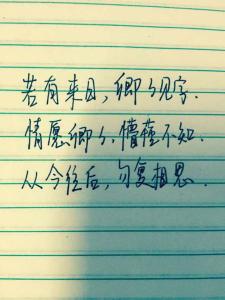 若有来日，卿卿见字．
情愿卿卿，懵懂不知．
从今往后，勿复相思．